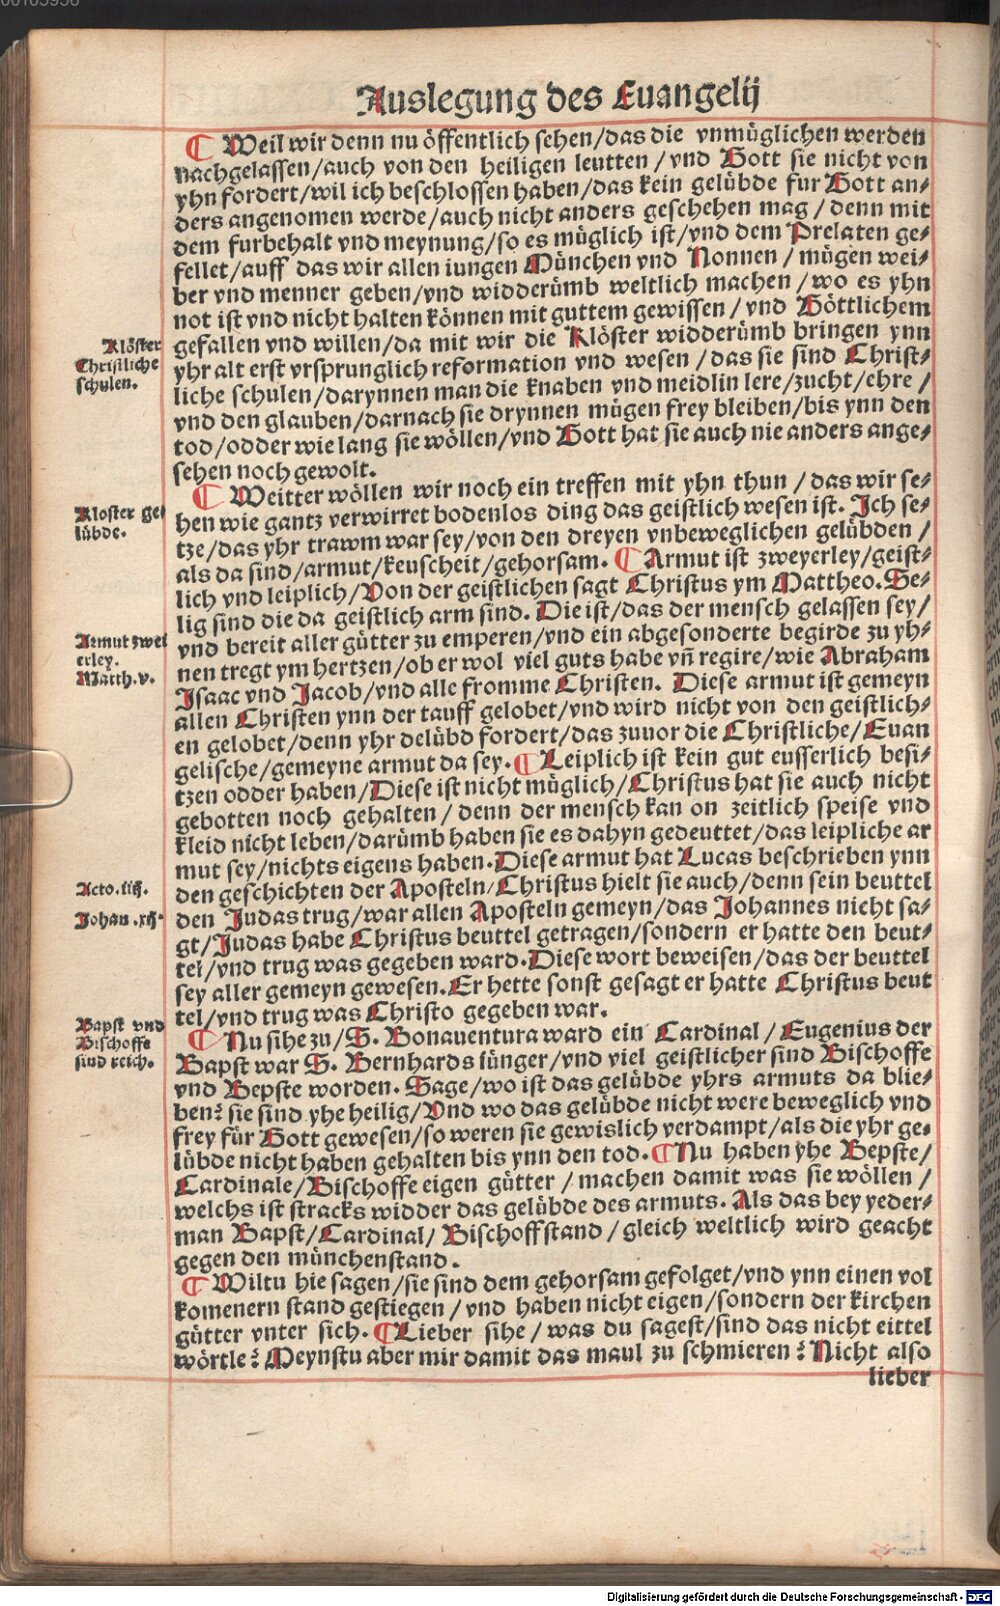 00105956
Auslegung des Euangelij
¶ Weil wir denn nu öffentlich sehen/das die vnmüglichen werden
nachgelassen/auch von den heiligen leutten/vnd Gott sie nicht von
yhn fordert/wil ich beschlossen haben/das kein gelübde fur Gott an⸗
ders angenomen werde/auch nicht anders geschehen mag/denn mit
dem furbehalt vnd meynung/so es müglich ist/vnd dem Prelaten ge⸗
fellet/auff das wir allen iungen München vnd Nonnen/mügen wei⸗
ber vnd menner geben/vnd widderümb weltlich machen/wo es yhn
not ist vnd nicht halten können mit guttem gewissen/vnd Göttlichem
Klöster
gefallen vnd willen/da mit wir die Klöster widderümb bringen ynn
Christliche
yhr alt erst vrsprunglich reformation vnd wesen/das sie sind Christ⸗
schulen.
liche schulen/darynnen man die knaben vnd meidlin lere/zucht/ehre/
vnd den glauben/darnach sie drynnen mügen frey bleiben/bis ynn den
tod/odder wie lang sie wöllen/vnd Gott hat sie auch nie anders ange⸗
sehen noch gewolt.
¶ Weitter wöllen wir noch ein treffen mit yhn thun/das wir se⸗
Kloster ge⸗
hen wie gantz verwirret bodenlos ding das geistlich wesen ist. Ich se⸗
lübde.
tze/das yhr trawm war sey/von den dreyen vnbeweglichen gelübden/
als da sind/armut/keuscheit/gehorsam. ¶ Armut ist zweyerley/geist⸗
lich vnd leiplich/Von der geistlichen sagt Christus ym Mattheo. Se⸗
lig sind die da geistlich arm sind. Die ist/das der mensch gelassen sey/
Armut zwei
vnd bereit aller gütter zu emperen/vnd ein abgesonderte begirde zu yh⸗
erley.
nen tregt ym hertzen/ob er wol viel guts habe vn̄ regire/wie Abraham
Matth.v.
Isaac vnd Jacob/vnd alle fromme Christen. Diese armut ist gemeyn
allen Christen ynn der tauff gelobet/vnd wird nicht von den geistlich⸗
en gelobet/denn yhr delübd fordert/das zuuor die Christliche/Euan
gelische/gemeyne armut da sey. ¶ Leiplich ist kein gut eusserlich besi⸗
tzen odder haben/Diese ist nicht müglich/Christus hat sie auch nicht
gebotten noch gehalten/denn der mensch kan on zeitlich speise vnd
kleid nicht leben/darümb haben sie es dahyn gedeuttet/das leipliche ar
mut sey/nichts eigens haben. Diese armut hat Lucas beschrieben ynn
Acto.iiij.
den geschichten der Aposteln/Christus hielt sie auch/denn sein beuttel
Johan.xij.
den Judas trug/war allen Aposteln gemeyn/das Johannes nicht sa⸗
gt/Judas habe Christus beuttel getragen/sondern er hatte den beut⸗
tel/vnd trug was gegeben ward. Diese wort beweisen/das der beuttel
sey aller gemeyn gewesen. Er hette sonst gesagt er hatte Christus beut
tel/vnd trug was Christo gegeben war.
Bapst vnd
¶ Nu sihe zu/S. Bonauentura ward ein Cardinal/Eugenius der
Bischoffe
Bapst war S. Bernhards iünger/vnd viel geistlicher sind Bischoffe
sind reich.
vnd Bepste worden. Sage/wo ist das gelübde yhrs armuts da blie⸗
ben? sie sind yhe heilig/Vnd wo das gelübde nicht were beweglich vnd
frey für Gott gewesen/so weren sie gewislich verdampt/als die yhr ge⸗
lübde nicht haben gehalten bis ynn den tod. ¶ Nu haben yhe Bepste/
Cardinale/Bischoffe eigen gütter/machen damit was sie wöllen/
welchs ist stracks widder das gelübde des armuts. Als das bey yeder⸗
man Bapst/Cardinal/Bischoff stand/gleich weltlich wird geacht
gegen den münchenstand.
¶ Wiltu hie sagen/sie sind dem gehorsam gefolget/vnd ynn einen vol
komenern stand gestiegen/vnd haben nicht eigen/sondern der kirchen
gütter vnter sich. ¶ Lieber sihe/was du sagest/sind das nicht eittel
wörtle? Meynstu aber mir damit das maul zu schmieren? Nicht also
lieber
Digitalisierung gefördert durch die Deutsche Forschungsgemeinschaft - DFG